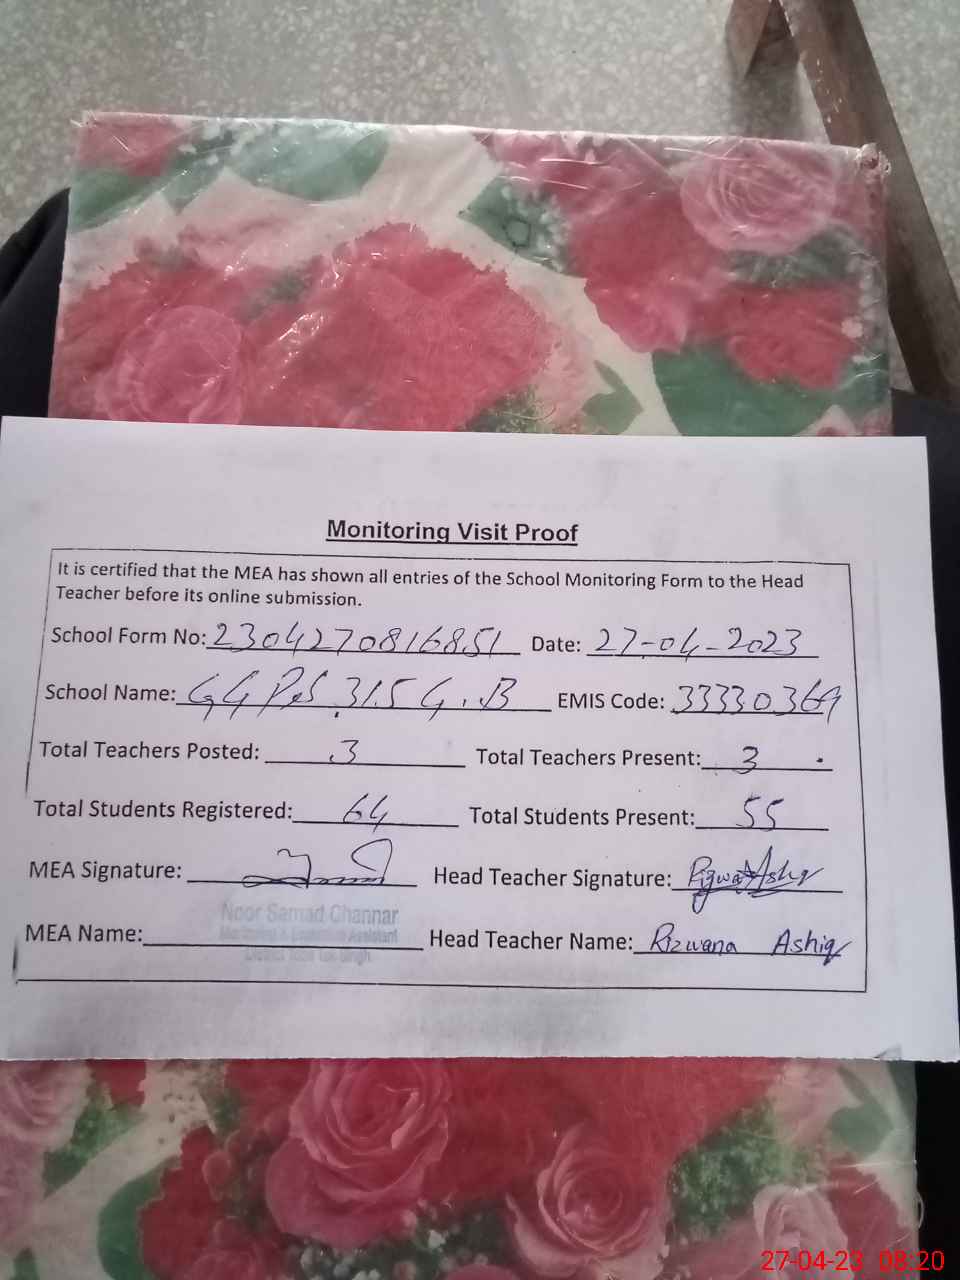 Monitoring Visit Proof
It is certified that the MEA has shown all entries of the School Monitoring Form to the Head
Teacher before its online submission.
School Form No: 2304270816851 Date: 27-04-2023
School Name: GGPS 315 G.B EMIS Code: 33330369
Total Teachers Posted: 3 Total Teachers Present: 3
Total Students Registered: 64 Total Students Present: 55
MEA Signature: Head Teacher Signature: Rizwana Ashiq
Noor Samad Channar
Monitoring & Evaluation Assistant
District Toba Tek Singh
MEA Name: Head Teacher Name: Rizwana Ashiq
27-04-23 08:20